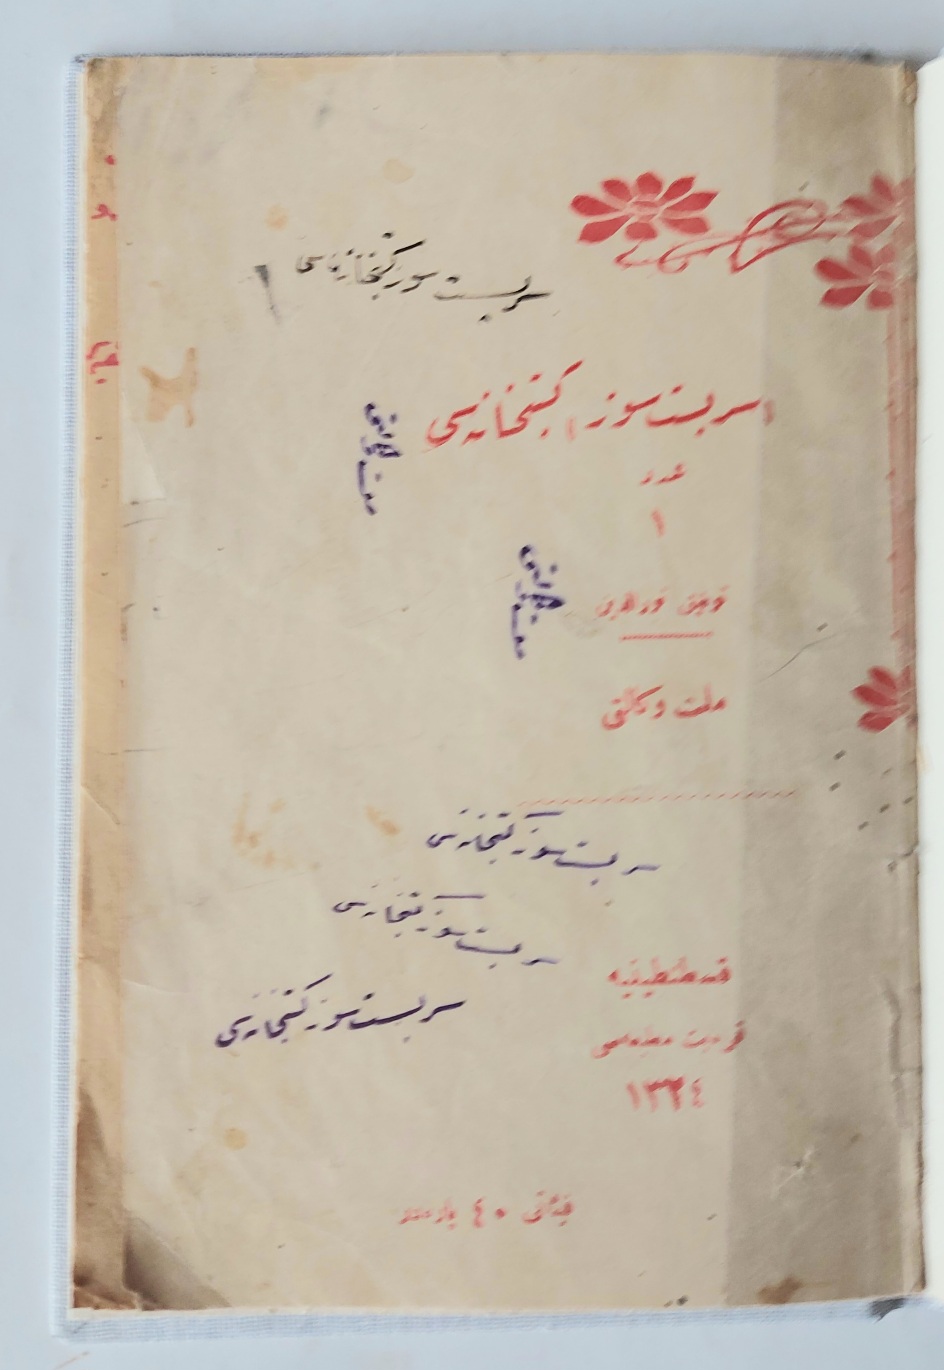 سربست سوز کتبخانه‌سی
(سربست سوز) کتبخانه‌سی
عدد
١
توفيق نورالدين
ملت وکالتى
سربست سوز کتبخانه‌سی
سربست سوز کتبخانه‌سی
سربست سوز کتبخانه‌سی
قسطنطينيه
مطبعه‌سى
١٣٢٤
فيئاتى ٤٠ پاره‌در